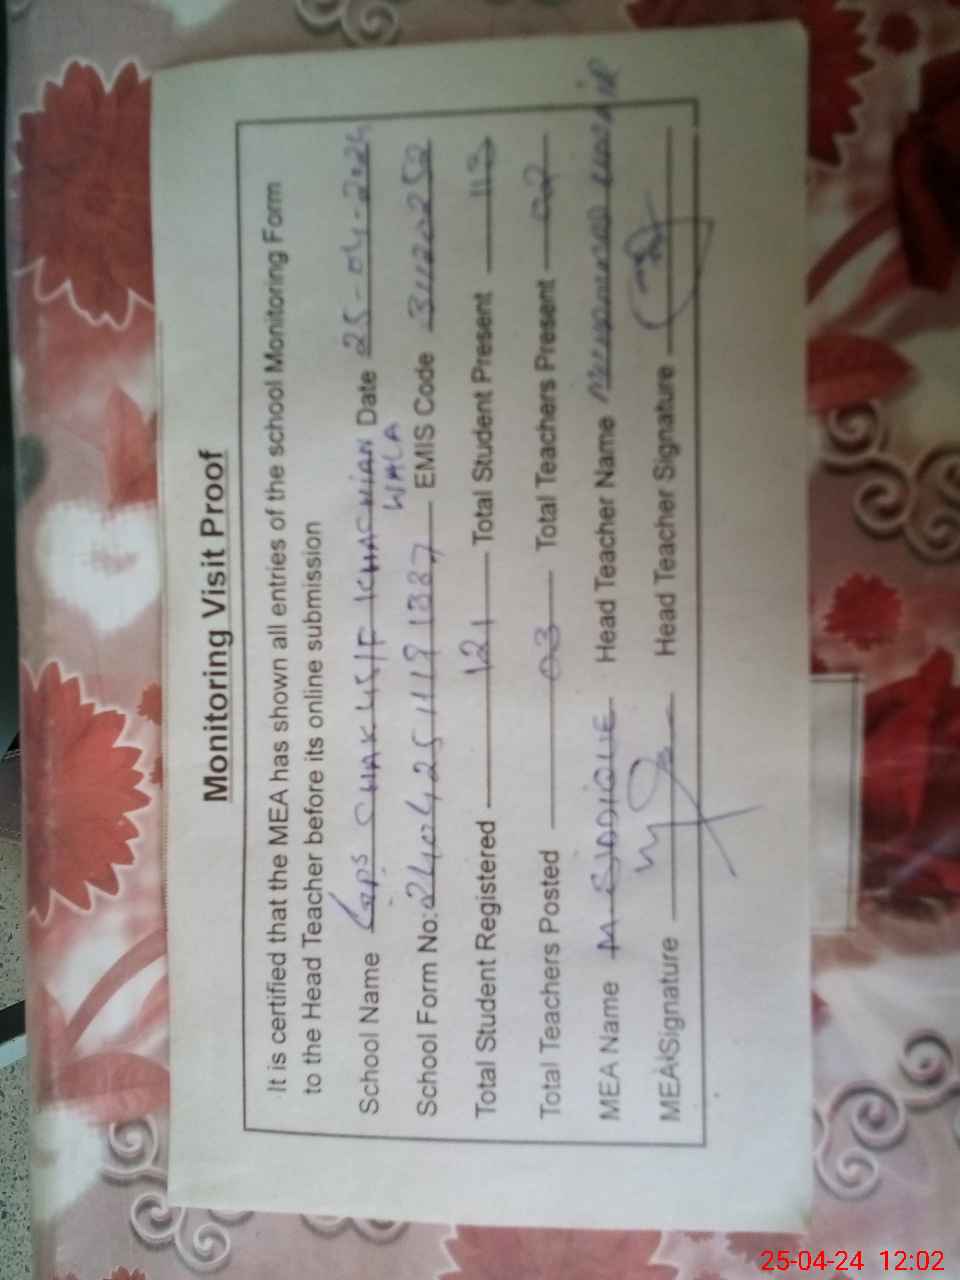 Monitoring Visit Proof
It is certified that the MEA has shown all entries of the school Monitoring Form
to the Head Teacher before its online submission
School Name GPS CHAK 45/F KHACHIAN WALA Date 25-04-2024
School Form No: 24042511191337 EMIS Code 31120252
Total Student Registered 121 Total Student Present 113
Total Teachers Posted 03 Total Teachers Present 02
MEA Name M SIDDIQUE Head Teacher Name Muhammad
MEA Signature Head Teacher Signature
25-04-24 12:02